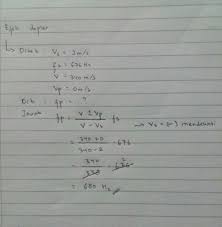 Efek dopler
↳ Diket : Vs = 2 m/s
fs = 676 Hz
V = 340 m/s
Vp = 0 m/s
Dit : fp = ... ?
Jawab :
fp = V ± Vp / V - Vs fs → Vs = (-) mendekati
= 340 + 0 / 340 - 2 . 676
= 340 / 338 . 676 2
= 680 Hz